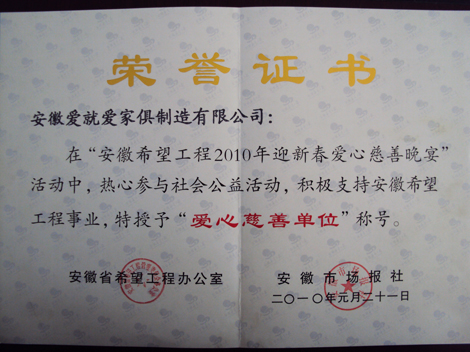 荣誉证书
安徽爱就爱家俱制造有限公司：
在“安徽希望工程2010年迎新春爱心慈善晚宴”
活动中，热心参与社会公益活动，积极支持安徽希望
工程事业，特授予“爱心慈善单位”称号。
安徽省希望工程办公室
安徽市场报社
二〇一〇年元月二十一日